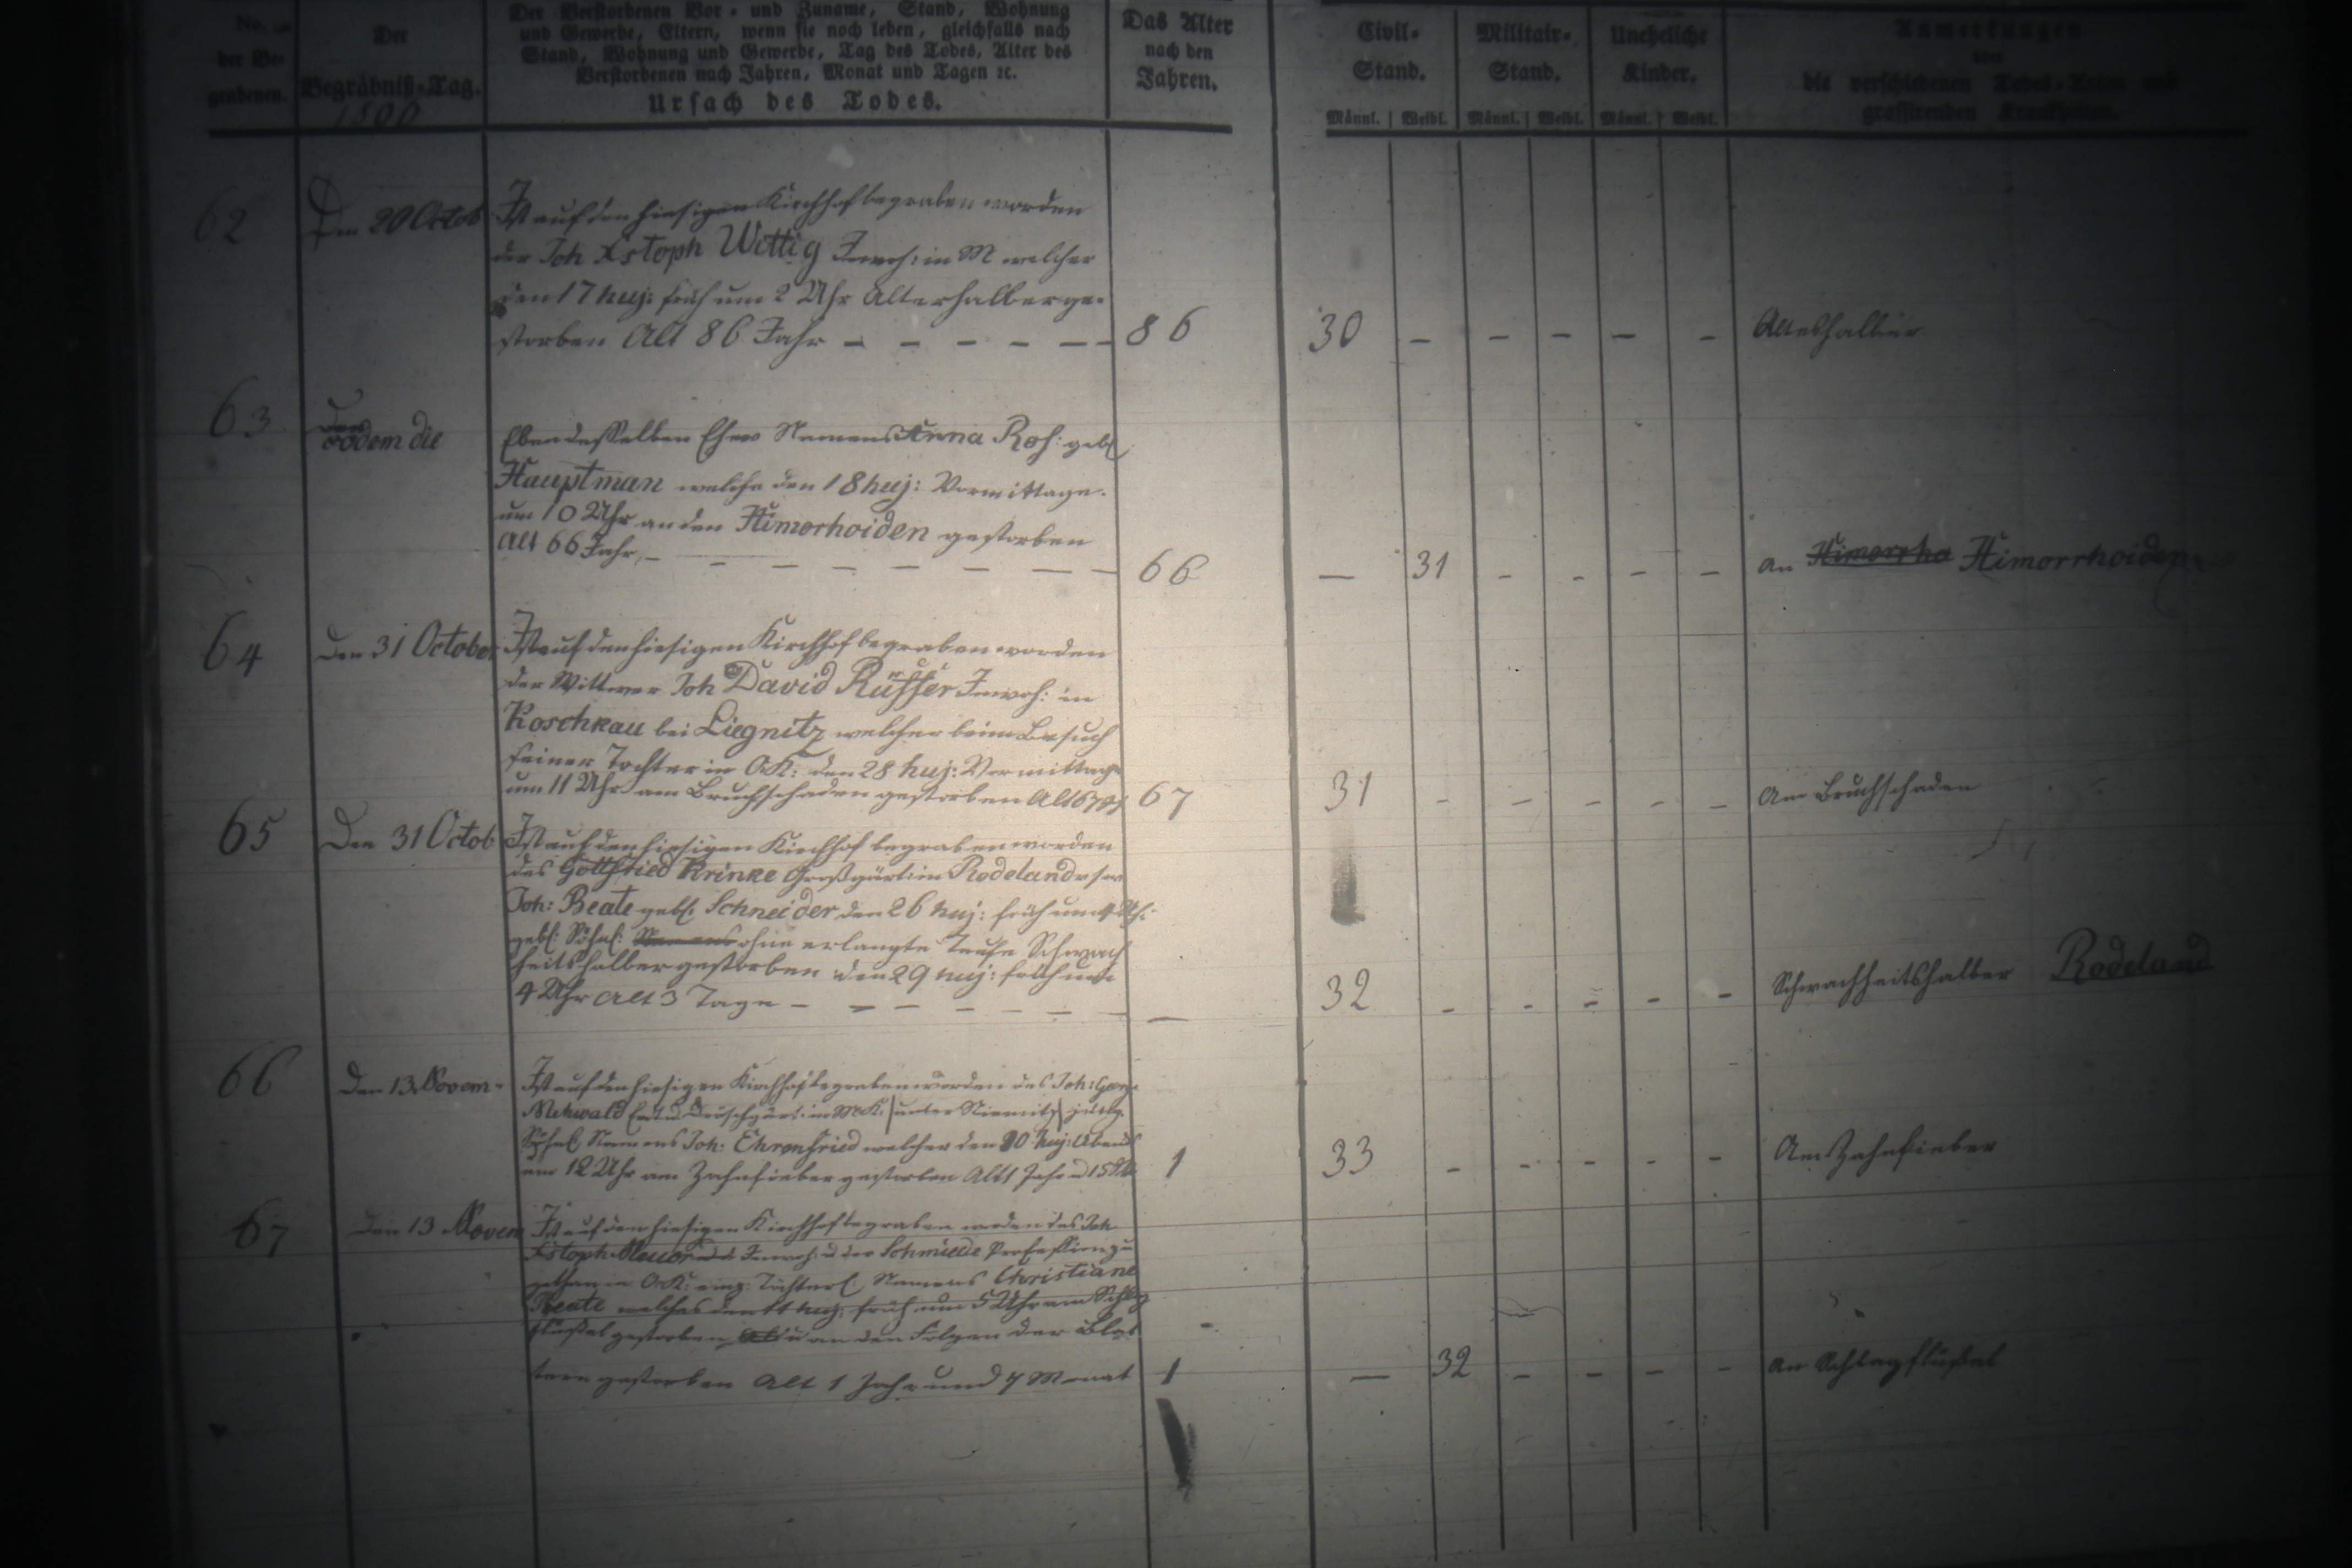 No.
der Be-
grabenen.
Der
Begräbniß-Tag.
1800
Der Verstorbenen Vor- und Zuname, Stand, Wohnung
und Gewerbe, Eltern, wenn sie noch leben, gleichfalls nach
Stand, Wohnung und Gewerbe, Tag des Todes, Alter des
Verstorbenen nach Jahren, Monat und Tagen ꝛc.
Ursach des Todes.
Das Alter
nach den
Jahren.
Civil-
Stand.
Männl. Weibl.
Militair-
Stand.
Männl. Weibl.
Uneheliche
Kinder.
Männl. Weibl.
Anmerkungen
über
die verschiedenen Todes-Arten und
grassirenden Krankheiten.
62
Den 20 Octob
Ist auf den hiesigen Kirchhof begraben worden
der Joh Xstoph Wittig Inwoh: in M welcher
den 17 huj: früh um 2 Uhr Alterhalber ge-
storben Alt 86 Jahr – – – – – –
86
30 – – – – –
Altershalber
63
eodem die
Ebendesselben Ehew Namens Anna Ros: geb
Hauptman welche den 18 huj: Vormittage.
um 10 Uhr an den Himorhoiden gestorben
Alt 66 Jahr, –
66
– 31 – – – –
an Himorrha Himorrhoiden
64
Den 31 October
Ist auf den hiesigen Kirchhof begraben worden
der Wittwer Joh David Rüffer Inwoh: in
Koschkau bei Liegnitz welcher beim Besuch
seiner Tochter in OK: den 28 huj: Vormittag
um 11 Uhr am Bruchschaden gestorben Alt 67
67
31 – – – – –
Am Bruchschaden
65
Den 31 Octob
Ist auf den hiesigen Kirchhof begraben worden
des Gottfried Krinke Großgärt in Rodeland
Joh: Beate geb. Schneider den 26 huj: früh um 4 Uh:
geb: Söhnl: Namens ohne erlangte Taufe Schwach
heitshalber gestorben den 29 huj: früh um
4 Uhr Alt 3 Tage – – – – – – –
32 – – – – –
Schwachheitshalber Rodeland
66
Den 13 Novem-
Ist auf den hiesigen Kirchhof begraben worden des Joh: Georg
Mehwald Dröschgärt: in MK. unter Niemitz jüng.
Söhnl Namens Joh: Ehrenfried welcher den 10 huj: Abends
um 12 Uhr am Zahnfieber gestorben Alt 1 Jahr
1
33 – – – – –
Am Zahnfieber
67
Den 13 Novem
Ist auf den hiesigen Kirchhof begraben worden des Joh
Xstoph Inwoh: d der Schmiede Profession zu
gethan in OK: einz: Töchterl Namens Christiane
Beate welches den 11 huj: früh um 5 Uhr am Schlag
flüßel gestorben u an den Folgen der Blat
tern gestorben Alt 1 Jahr und 7 Monat
1
– 32 – – – –
an Schlagflüßel